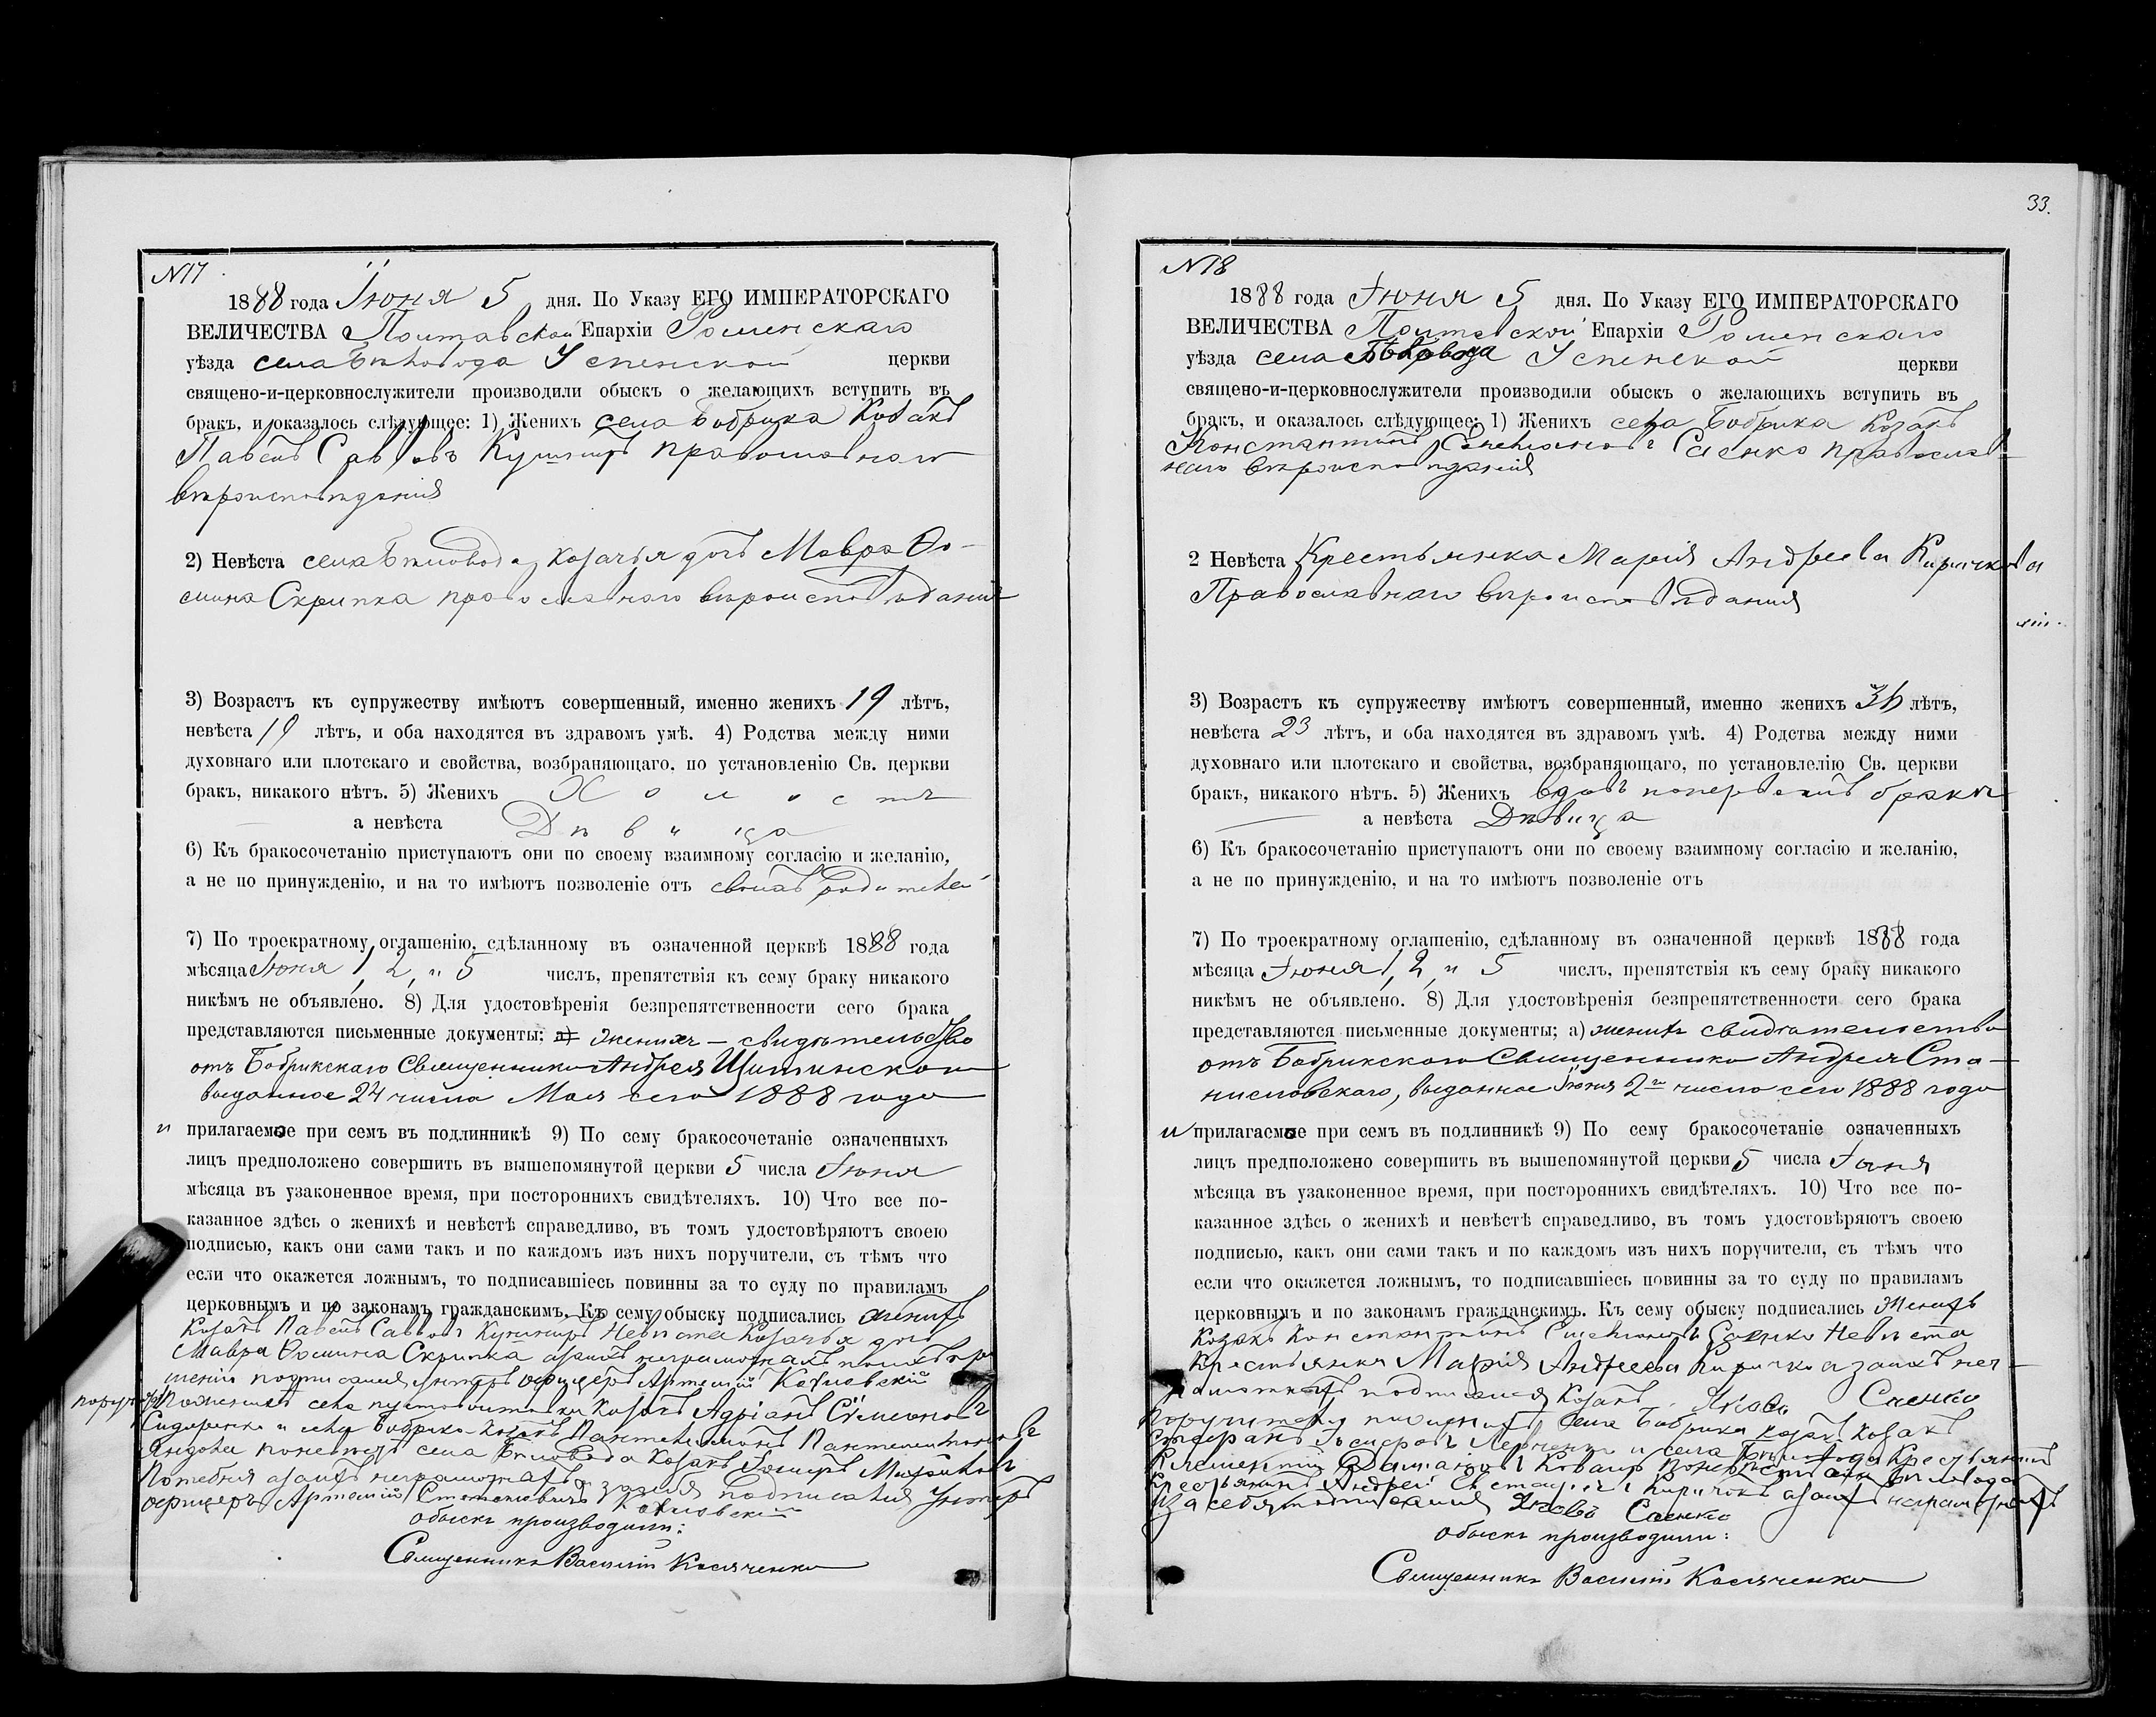 N17
1888 года Іюня 5 дня. По Указу ЕГО ИМПЕРАТОРСКАГО
ВЕЛИЧЕСТВА Полтавской Епархіи Роменскаго
уѣзда села Бѣловода Успенской церкви
священо-и-церковнослужители производили обыскъ о желающихъ вступить въ
бракъ, и оказалось слѣдующее: 1) Женихъ села Бобрика Козакъ
Павелъ Саввовъ православнаго
вѣроисповѣданія
2) Невѣста села Бѣловода, козачья дочь Мавра Ѳо-
мина Скрипка православнаго вѣроисповѣданія
3) Возрастъ къ супружеству имѣютъ совершенный, именно женихъ 19 лѣтъ,
невѣста 19 лѣтъ, и оба находятся въ здравомъ умѣ. 4) Родства между ними
духовнаго или плотскаго и свойства, возбраняющаго, по установленію Св. церкви
бракъ, никакого нѣтъ. 5) Женихъ Холостъ
а невѣста Дѣвица
6) Къ бракосочетанію приступаютъ они по своему взаимному согласію и желанію,
а не по принужденію, и на то имѣютъ позволеніе отъ своихъ родителей
7) По троекратному оглашенію, сдѣланному въ означенной церквѣ 1888 года
мѣсяца Іюня 1, 2, и 5 числъ, препятствія къ сему браку никакого
никѣмъ не объявлено. 8) Для удостовѣренія безпрепятственности сего брака
представляются письменные документы: а) женихъ – свидѣтельство
отъ Бобрикскаго Священника Андрея
выданное 24 числа Мая сего 1888 года
и прилагаемое при семъ въ подлинникѣ 9) По сему бракосочетаніе означенныхъ
лицъ предположено совершить въ вышепомянутой церкви 5 числа Іюня
мѣсяца въ узаконенное время, при постороннихъ свидѣтеляхъ. 10) Что все по-
казанное здѣсь о женихѣ и невѣстѣ справедливо, въ томъ удостовѣряютъ своею
подписью, какъ они сами такъ и по каждомъ изъ нихъ поручители, съ тѣмъ что
если что окажется ложнымъ, то подписавшіесь повинны за то суду по правиламъ
церковнымъ и по законамъ гражданскимъ. Къ сему обыску подписались женихъ
Козакъ Павелъ Саввовъ Невѣста Козачья дочь
Мавра Ѳомина Скрипка
подписался унтеръ офицеръ Артемій
села козакъ Адріанъ Семеновъ
Сидоренко и села Бобрика Козакъ Пантелеймонъ
села Бѣловода Козакъ
подписался Унтеръ
офицеръ Артемій Степановичъ
обыскъ производили:
Священникъ Василій Косяченко
33.
N18
1888 года Іюня 5 дня. По Указу ЕГО ИМПЕРАТОРСКАГО
ВЕЛИЧЕСТВА Полтавской Епархіи Роменскаго
уѣзда села Бѣловода Успенской церкви
священо-и-церковнослужители производили обыскъ о желающихъ вступить въ
бракъ, и оказалось слѣдующее: 1) Женихъ села Бобрика Козакъ
Константинъ Саенко православ-
наго вѣроисповѣданія
2 Невѣста Крестьянка Марія Андреева Киричкова
Православнаго вѣроисповѣданія
3) Возрастъ къ супружеству имѣютъ совершенный, именно женихъ 36 лѣтъ,
невѣста 23 лѣтъ, и оба находятся въ здравомъ умѣ. 4) Родства между ними
духовнаго или плотскаго и свойства, возбраняющаго, по установлелію Св. церкви
бракъ, никакого нѣтъ. 5) Женихъ вдовъ по первомъ бракѣ
а невѣста Дѣвица
6) Къ бракосочетанію приступаютъ они по своему взаимному согласію и желанію,
а не по принужденію, и на то имѣютъ позволеніе отъ
7) По троекратному оглашенію, сдѣланному въ означенной церквѣ 1888 года
мѣсяца Іюня 1, 2, и 5 числъ, препятствія къ сему браку никакого
никѣмъ не объявлено. 8) Для удостовѣренія безпрепятственности сего брака
представляются письменные документы; а) женихъ свидѣтельство
отъ Бобрикскаго Священника Андрея Ста-
ниславскаго, выданное Іюня 2го числа сего 1888 года
и прилагаемое при семъ въ подлинникѣ 9) По сему бракосочетаніе означенныхъ
лицъ предположено совершить въ вышепомянутой церкви 5 числа Іюня
мѣсяца въ узаконенное время, при постороннихъ свидѣтеляхъ. 10) Что все по-
казанное здѣсь о женихѣ и невѣстѣ справедливо, въ томъ удостовѣряютъ своею
подписью, какъ они сами такъ и по каждомъ изъ нихъ поручители, съ тѣмъ что
если что окажется ложнымъ, то подписавшіесь повинны за то суду по правиламъ
церковнымъ и по законамъ гражданскимъ. Къ сему обыску подписались Женихъ
Козакъ Константинъ Саенко Невѣста
Крестьянка Марія Андреева Киричко а за ихъ нег-
рамотныхъ подписался Козакъ Яковъ Саенко
Поручители по женихѣ села Бобрика козакъ
и села Бѣловода Крестьянинъ
Климентій
Крестьянинъ Андрей Киричокъ а за ихъ неграмотныхъ
и за себя подписался Яковъ Саенко
Обыскъ производили:
Священникъ Василій Косяченко